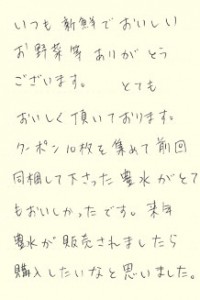 いつも新鮮でおいしい
お野菜等ありがとう
ございます。 とても
おいしく頂いております。
クーポン10枚を集めて前回
同梱して下さった豊水がとて
もおいしかったです。来年
豊水が販売されましたら
購入したいなと思いました。